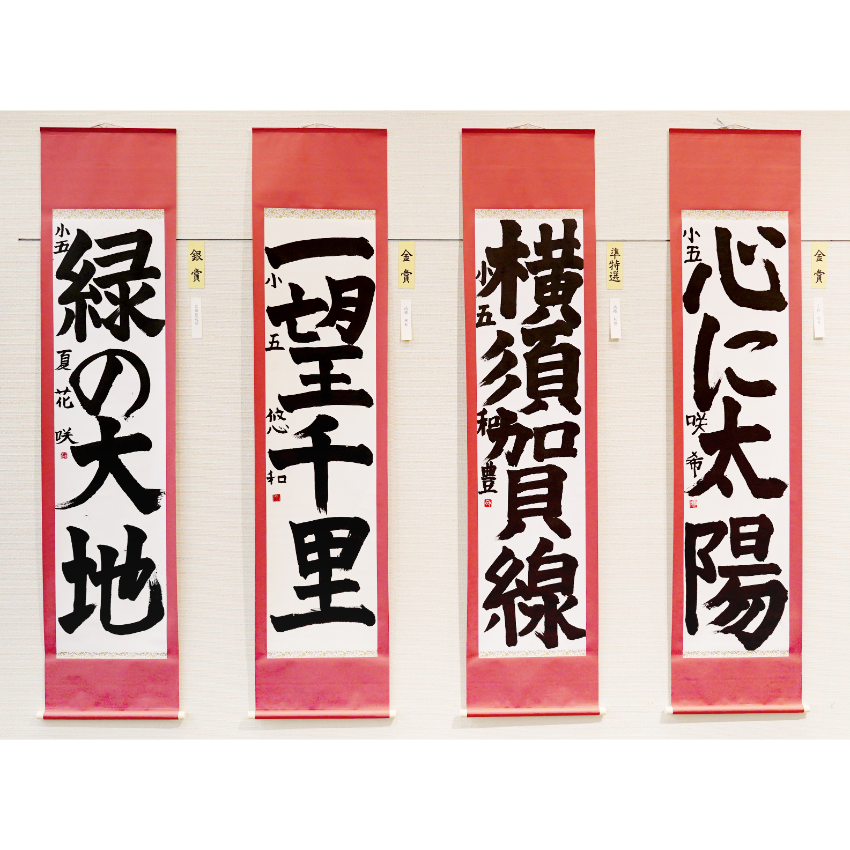 心に太陽
小五
咲希
金賞
横須賀線
小五
和豊
準特選
一望千里
小五
悠和
金賞
緑の大地
小五
夏花咲
銀賞